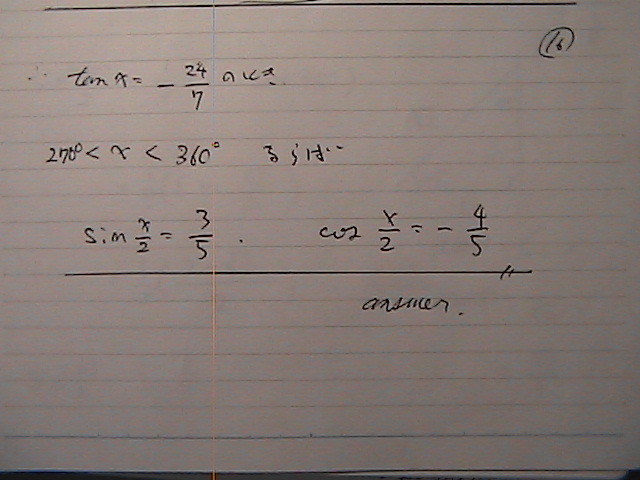 (16)
∴ tan x = - 24/7 のとき.
270° < x < 360° ならば
sin x/2 = 3/5 . cos x/2 = - 4/5
answer.